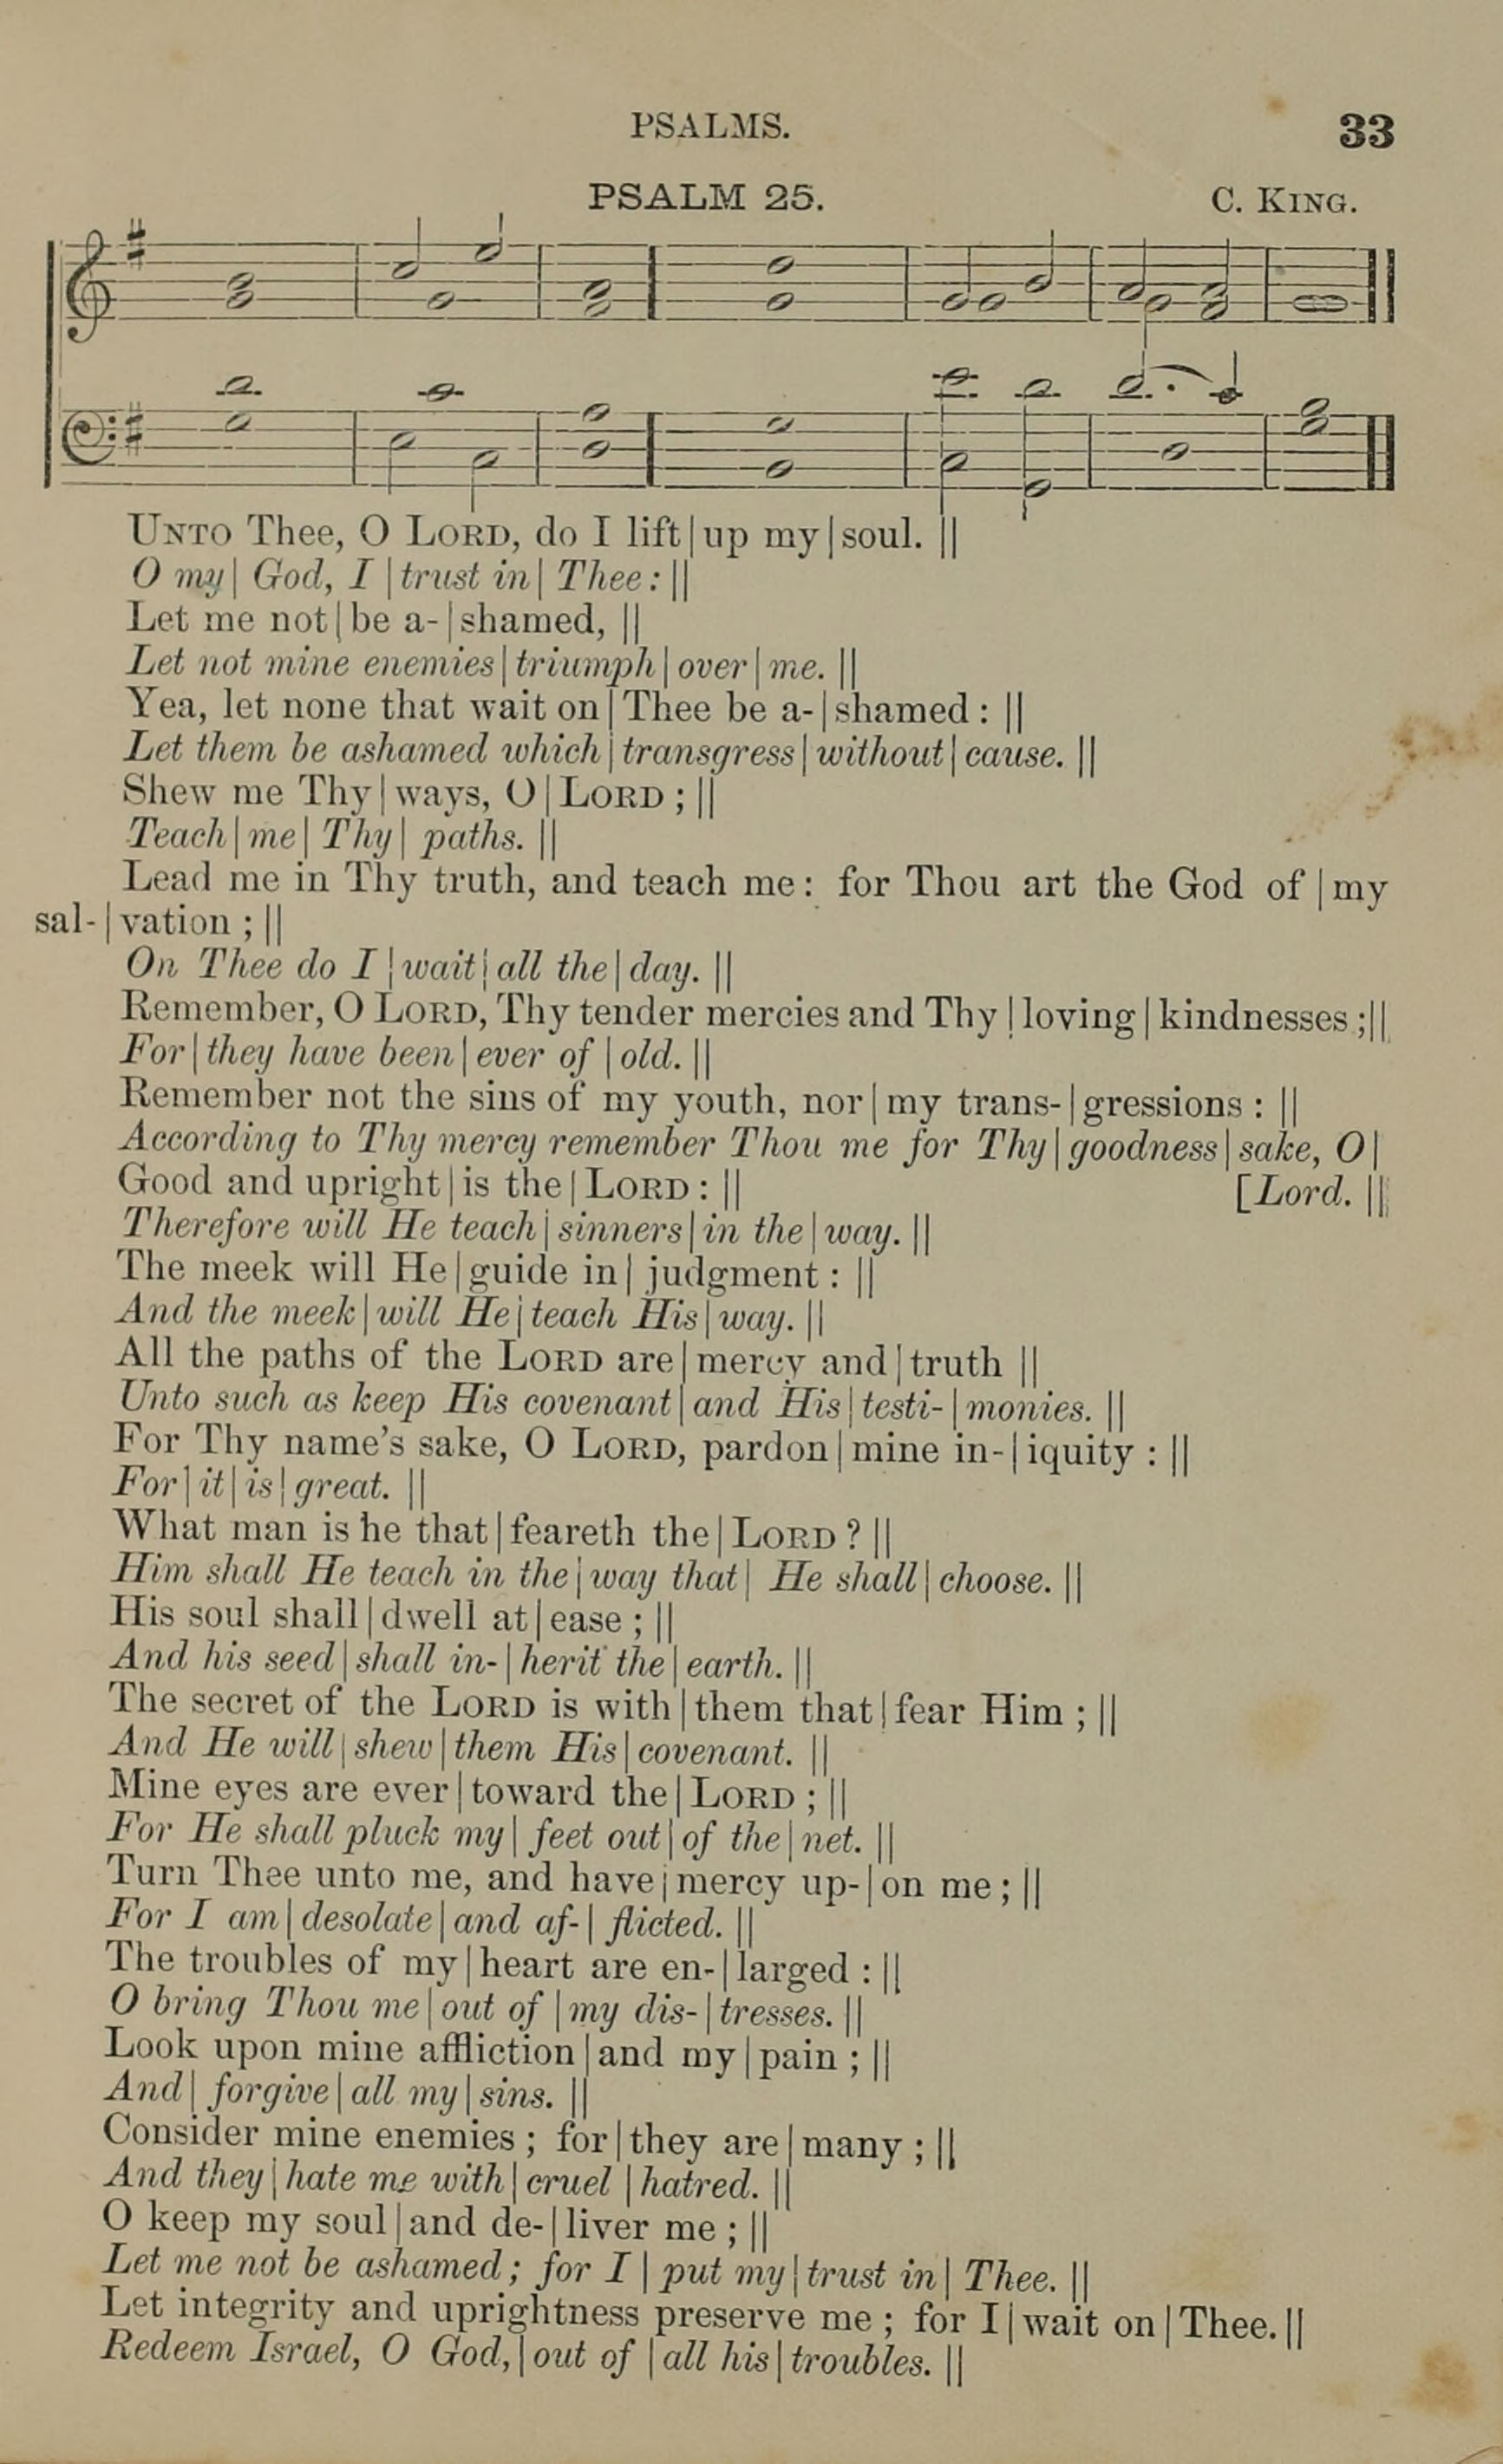 PSALMS.
33
PSALM 25.
C. KING.
UNTO Thee, O LORD, do I lift|up my|soul. ||
O my| God, I |trust in| Thee: ||
Let me not|be a-|shamed, ||
Let not mine enemies|triumph|over|me. ||
Yea, let none that wait on|Thee be a-|shamed : ||
Let them be ashamed which|transgress|without|cause. ||
Shew me Thy|ways, O|LORD ; ||
Teach|me|Thy|paths. ||
Lead me in Thy truth, and teach me: for Thou art the God of |my
sal-|vation ; ||
On Thee do I |wait|all the|day. ||
Remember, O LORD, Thy tender mercies and Thy |loving|kindnesses ;||
For|they have been|ever of |old. ||
Remember not the sins of my youth, nor|my trans-|gressions : ||
According to Thy mercy remember Thou me for Thy|goodness|sake, O|
Good and upright|is the|LORD : ||
[Lord. ||
Therefore will He teach|sinners|in the|way. ||
The meek will He|guide in| judgment : ||
And the meek|will He|teach His|way. ||
All the paths of the LORD are|mercy and|truth ||
Unto such as keep His covenant|and His|testi-|monies. ||
For Thy name's sake, O LORD, pardon|mine in-|iquity : ||
For|it|is|great. ||
What man is he that|feareth the|LORD ? ||
Him shall He teach in the|way that| He shall|choose. ||
His soul shall|dwell at|ease ; ||
And his seed|shall in-|herit the|earth. ||
The secret of the LORD is with|them that|fear Him ; ||
And He will|shew|them His|covenant. ||
Mine eyes are ever|toward the|LORD ; ||
For He shall pluck my| feet out|of the|net. ||
Turn Thee unto me, and have|mercy up-|on me ; ||
For I am|desolate|and af-| flicted. ||
The troubles of my|heart are en-|larged : ||
O bring Thou me|out of |my dis-|tresses. ||
Look upon mine affliction|and my|pain ; ||
And| forgive|all my|sins. ||
Consider mine enemies ; for|they are|many ; ||
And they|hate me with|cruel |hatred. ||
O keep my soul|and de-|liver me ; ||
Let me not be ashamed; for I | put my|trust in| Thee. ||
Let integrity and uprightness preserve me ; for I|wait on|Thee. ||
Redeem Israel, O God,|out of |all his|troubles. ||